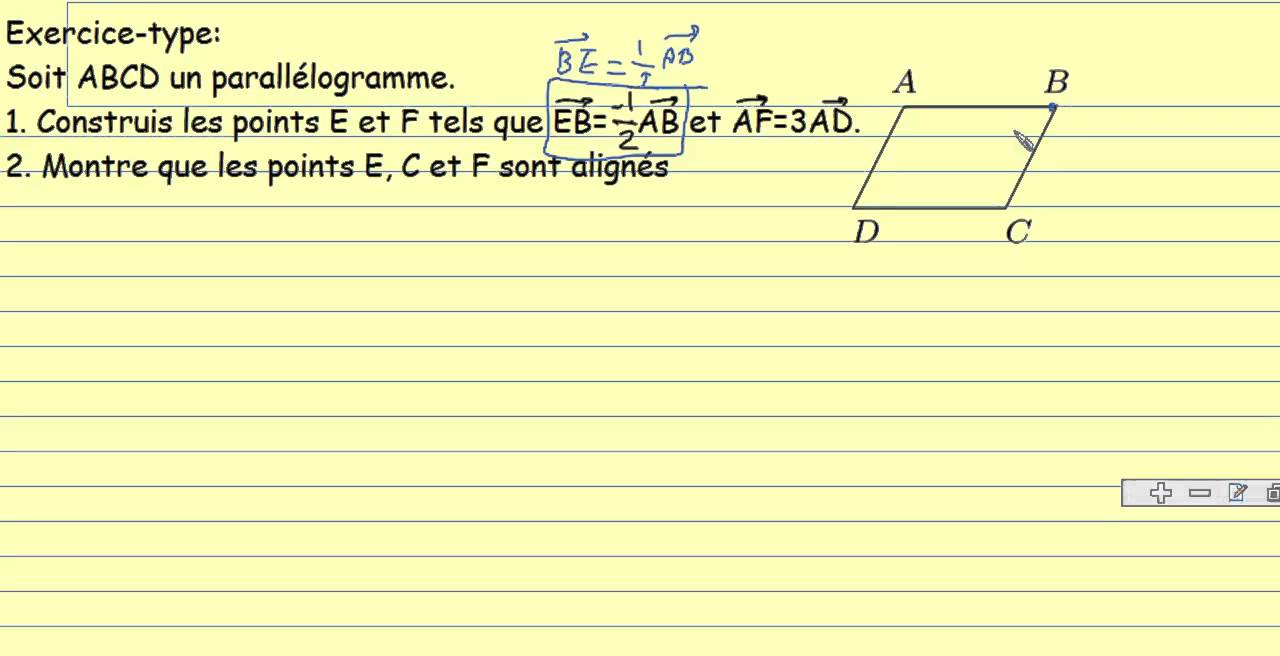 Exercice-type:
Soit ABCD un parallélogramme.
BE = 1/2 AB
1. Construis les points E et F tels que EB=-1/2AB et AF=3AD.
2. Montre que les points E, C et F sont alignés
A B
D C